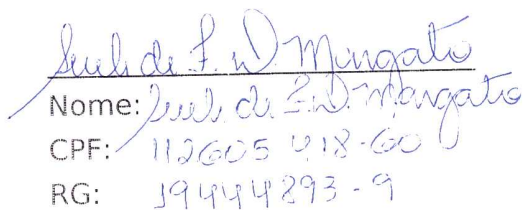 Sueli de F. D. Mingato
Nome: Sueli de F. D. Mangato
CPF: 112605 418-60
RG: 19444893-9